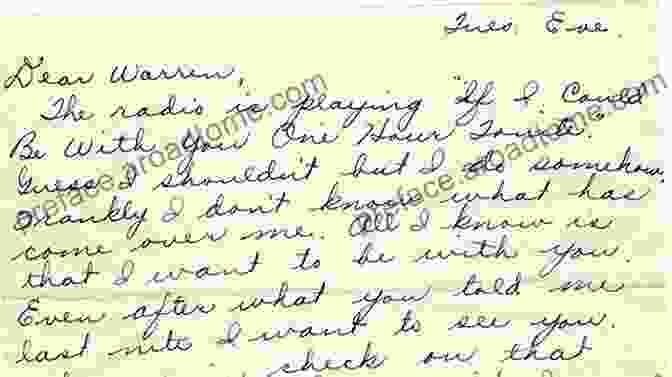 Tues. Eve.
Dear Warren,
The radio is playing "If I Could
Be With You One Hour Tonite."
Guess I shouldn't but I do somehow.
Frankly I don't know what has
come over me. All I know is
that I want to be with you.
Even after what you told me
last nite I want to see you.
check on that
preface.aroadtome.com
preface.aroadtome.com